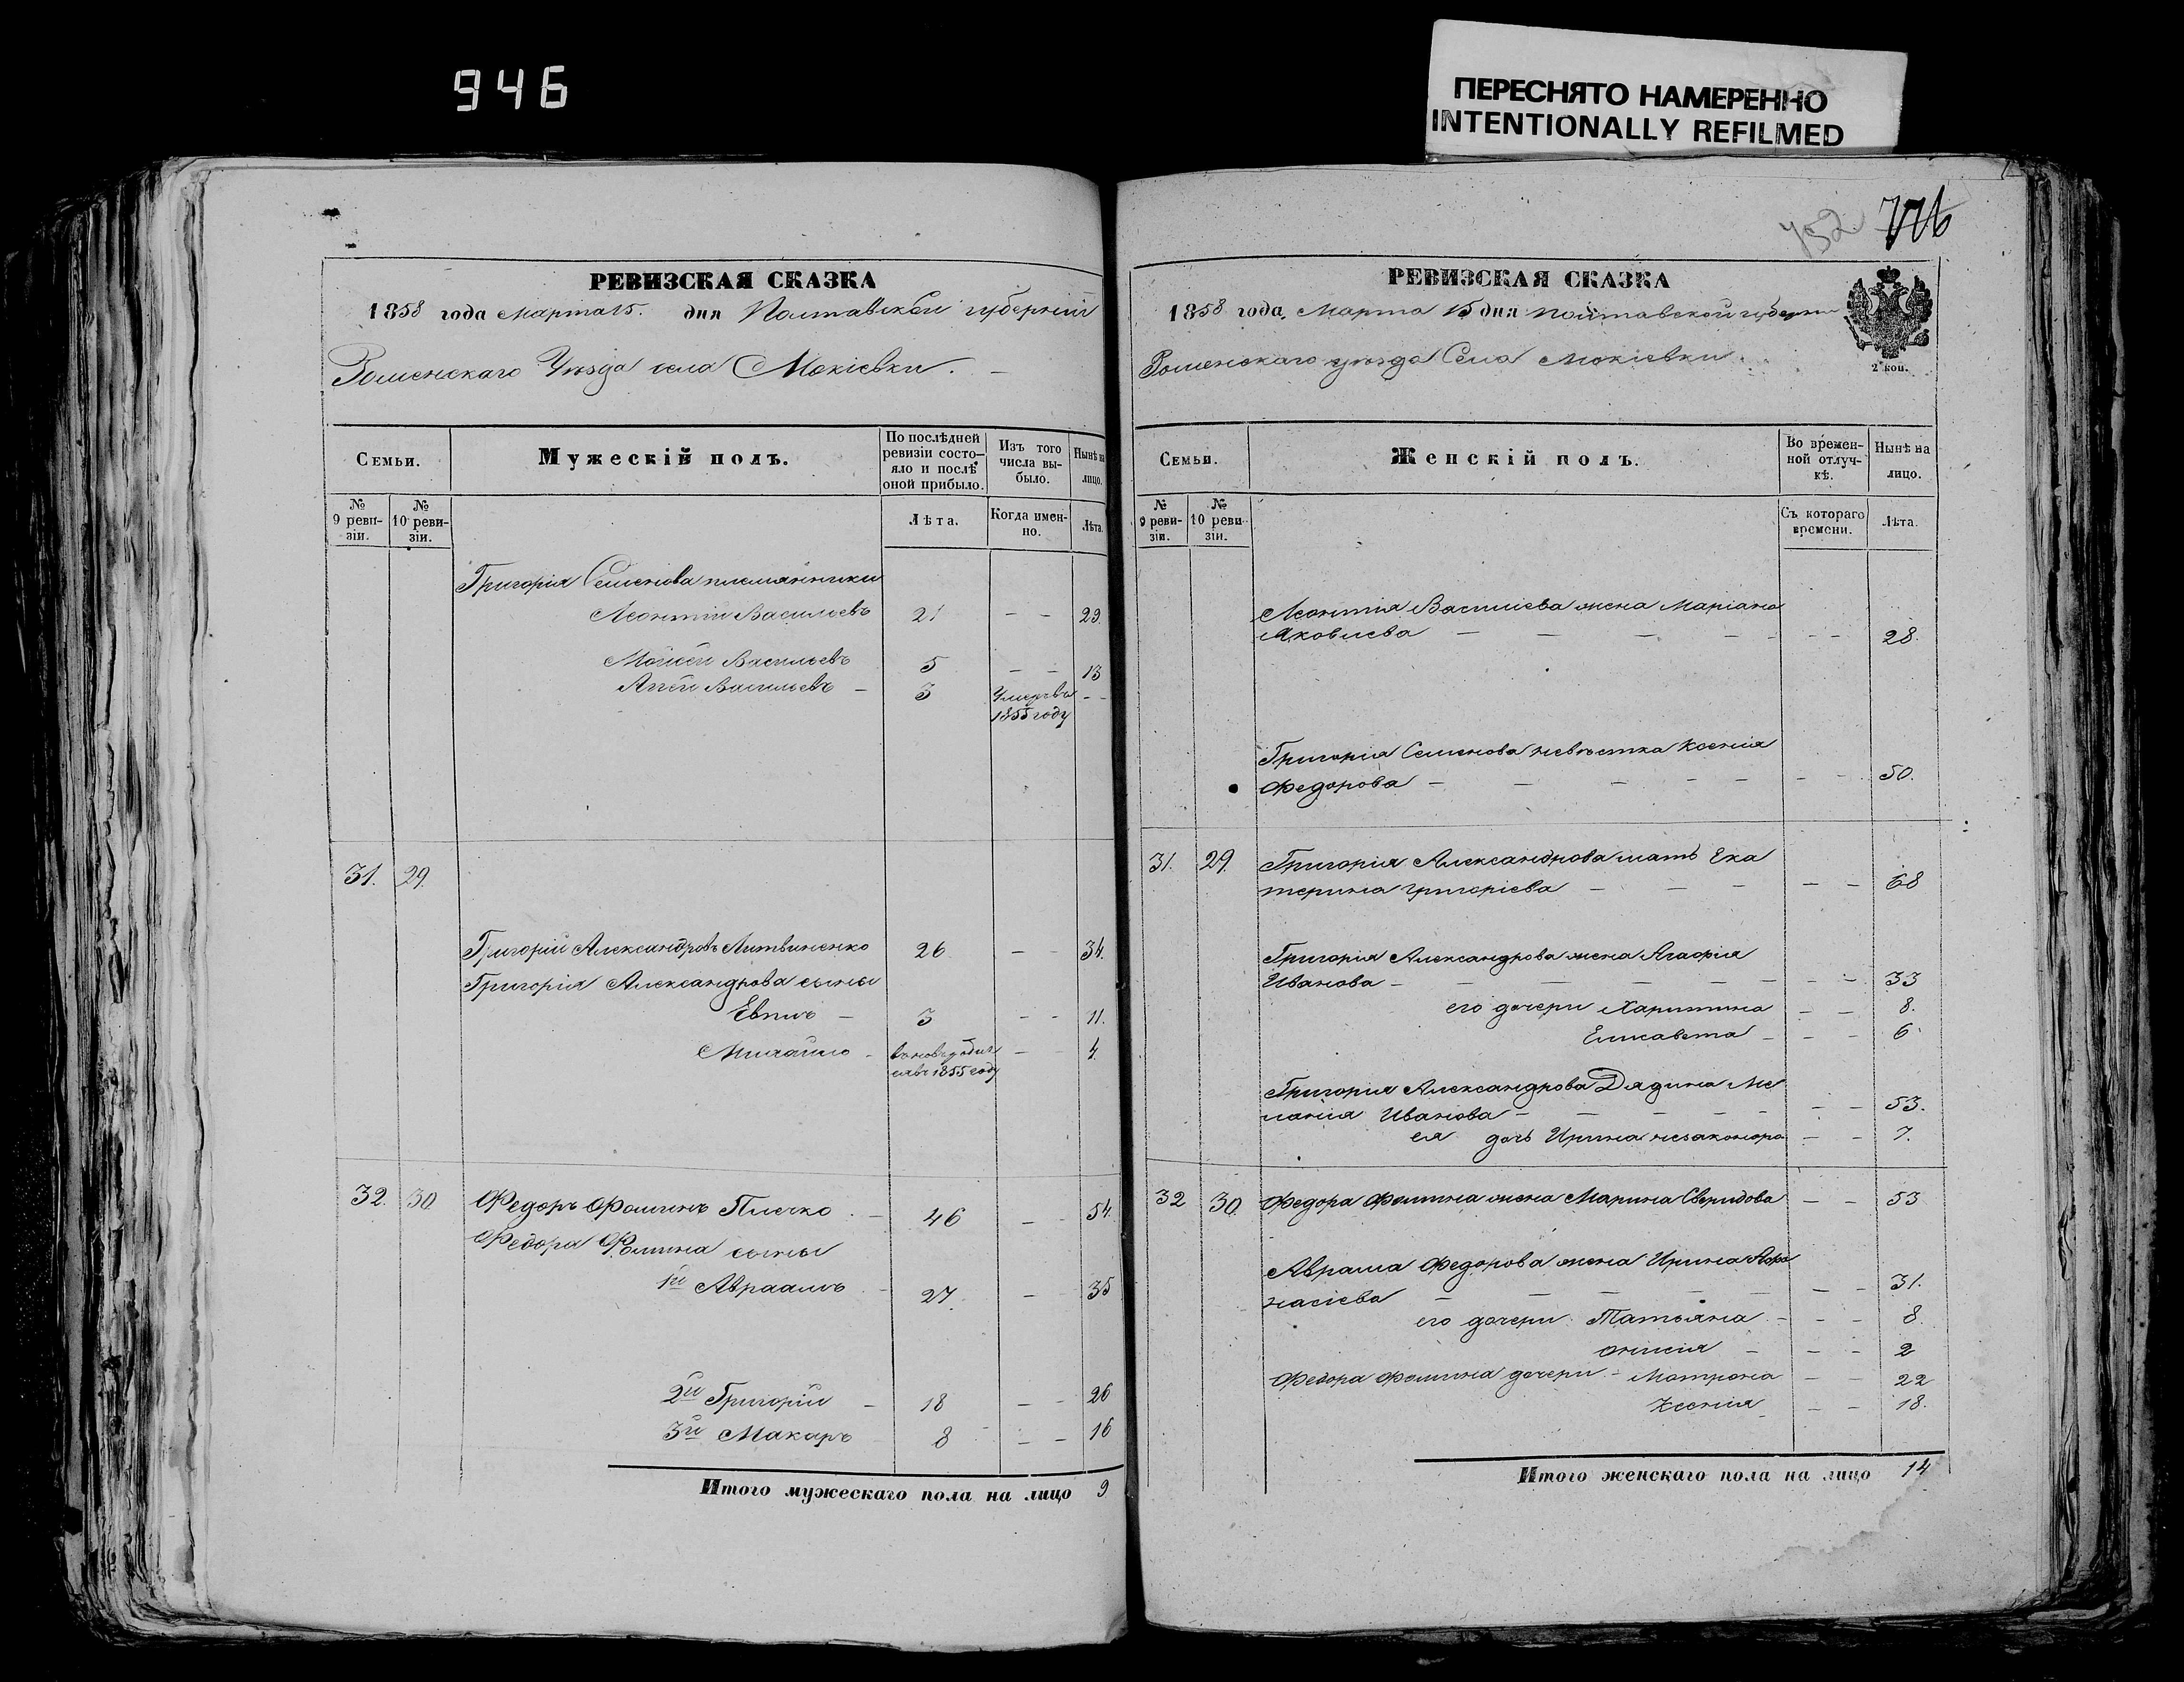 946
ПЕРЕСНЯТО НАМЕРЕННО
INTENTIONALLY REFILMED
РЕВИЗСКАЯ СКАЗКА
1858 года Марта 15. дня Полтавской губерніи
Роменскаго Уѣзда села Мокіевки.
Семьи.
Мужескій полъ.
По послѣдней ревизіи состо-
яло и послѣ
оной прибыло.
Изъ того
числа вы-
было.
Нынѣ на
лицо.
№
9 реви-
зіи.
№
10 реви-
зіи.
Лѣта.
Когда имен-
но.
Лѣта.
Григорія Семенова племянники
Леонтій Васильевъ 21 — — 29.
Мойсей Васильевъ 5 — — 13
Васильевъ — 3 Умеръ въ — —
1855 году
31. 29.
Григорій Александровъ Литвиненко 26 — — 34.
Григорія Александрова сыны
Евплъ — 3 — — 11.
Михайло — вновь родил — — 4.
ся въ 1855 году
32. 30 Федоръ Фоминъ Плечко — 46 — — 54.
Федора Фомина сыны
1й Авраамъ — 27 — — 35
2й Григорій — 18 — — 26
3й Макаръ 8 — — 16
Итого мужескаго пола на лицо 9
752 776
РЕВИЗСКАЯ СКАЗКА
1858 года, Марта 15 дня Полтавской губерни
Роменскаго уѣзда Села Мокіевки.
2 коп.
Семьи.
Женскій полъ.
Во времен-
ной отлуч-
кѣ.
Нынѣ на
лицо.
№
9 реви-
зіи.
№
10 реви-
зіи.
Съ котораго
времени.
Лѣта.
Леонтія Василіева жена Маріана
Яковлева — — — — — — 28.
Григорія Семенова невѣстка Ксенія
Федорова — — — — — — — 50.
31. 29. Григорія Александрова мать Ека
терина Григоріева — — — — — 68
Григорія Александрова жена Агафія
Иванова — — — — — — — 33
его дочери Харитина — — 8.
Елисавета — — — 6
Григорія Александрова Дядина Ме
ланія Иванова — — — — — — — 53.
ея дочь Ирина незаконоро — — 7.
32 30. Федора Фомина жена Марина Свиридова — — 53
Аврама Федорова жена Ирина Афа
насіева — — — — — — 31.
его дочери Татьяна — — — 8.
Онисія — — — 2
Федора Фомина дочери — Матрона — — 22
Ксенія — — 18.
Итого женскаго пола на лицо 14